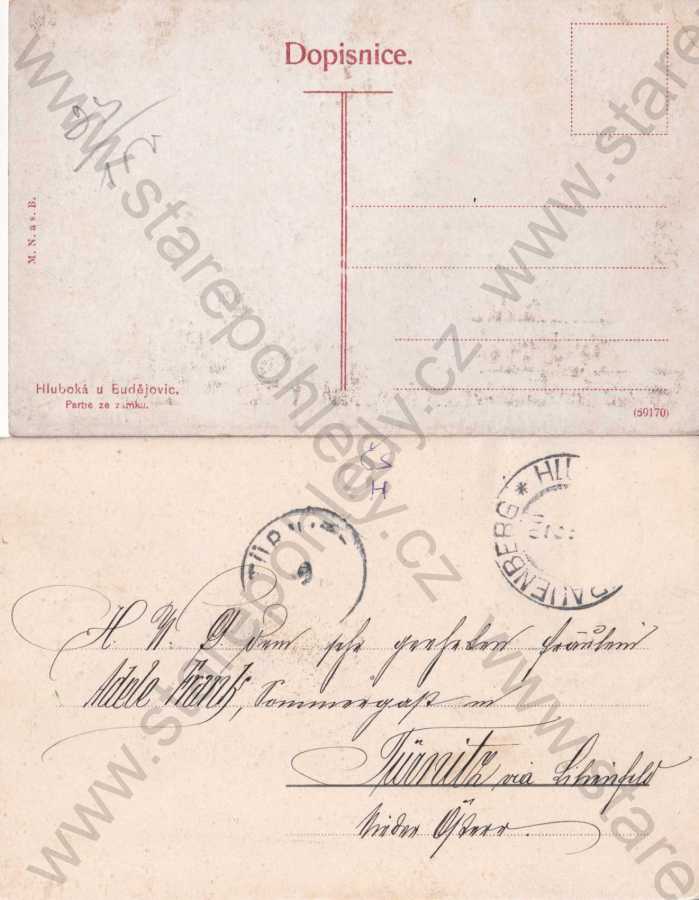 Dopisnice.
M. N. a s. B.
Hluboká u Budějovic.
Partie ze zámku.
(59170)
HLU
RAUENBERG *
TÜRN
9
H. W. G dem sehr geehrten Fräulein
Adele Frank, Sommergast in
Türnitz via Lilienfeld
Nieder Österr.
www.starepohledy.cz